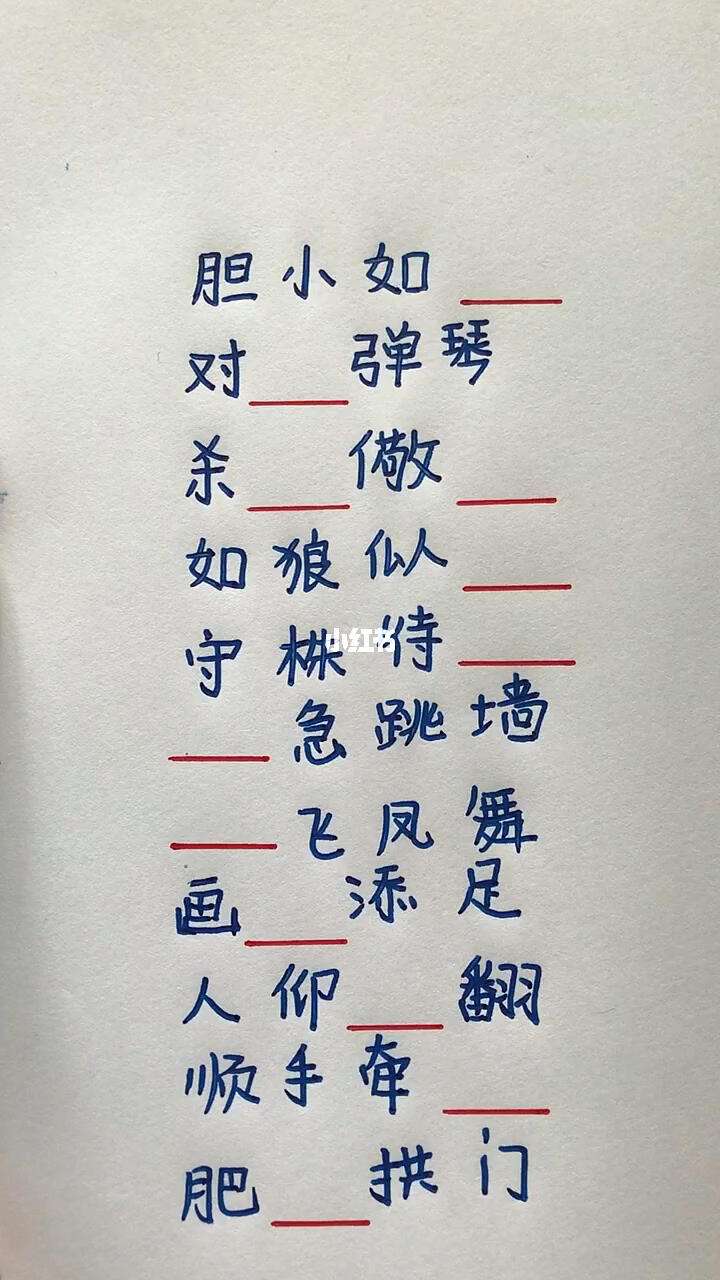 胆小如____
对____弹琴
杀____儆____
如狼似人____
守株待____
小红书
____急跳墙
____飞凤舞
画____添足
人仰____翻
顺手牵____
肥____拱门